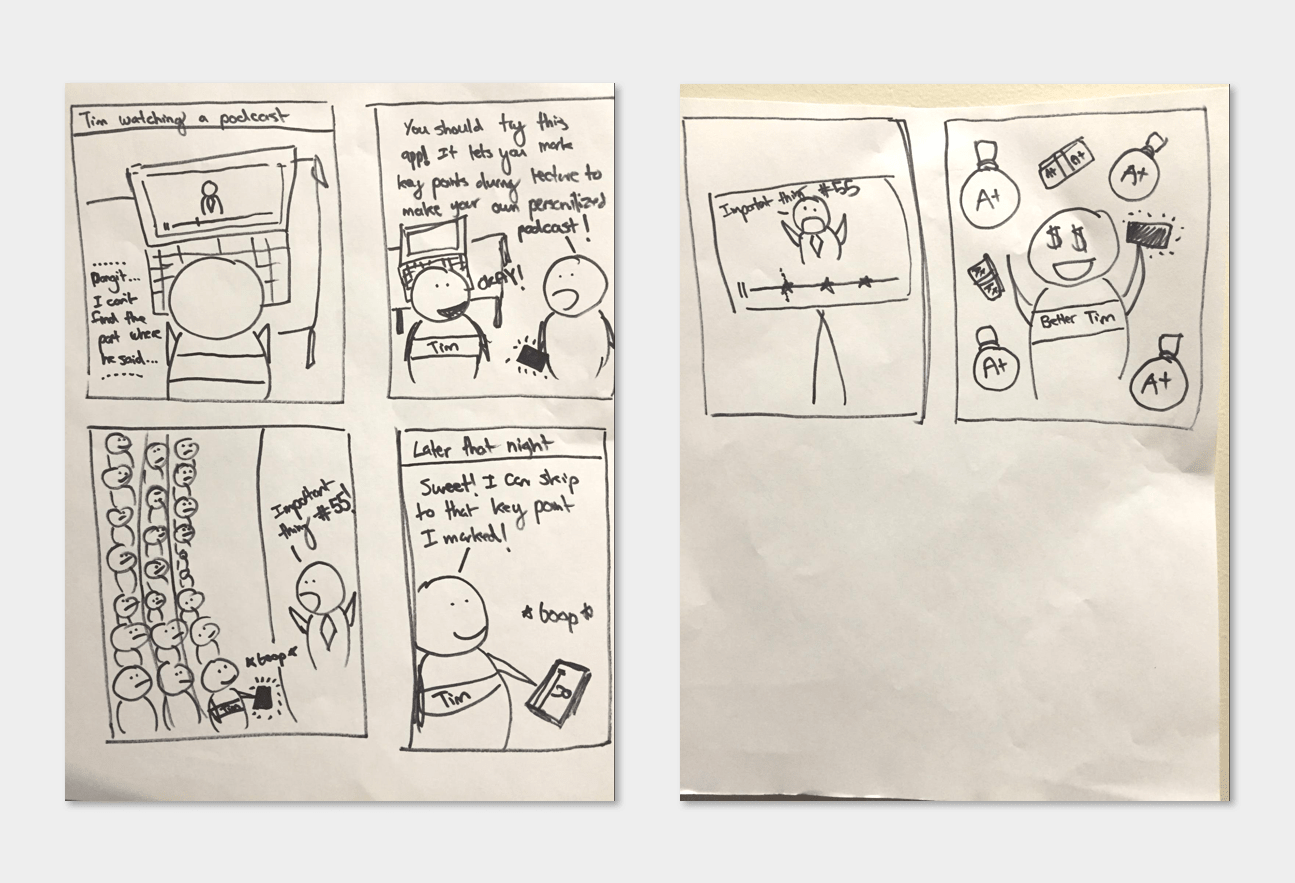 Tim watching a podcast
Dangit...
I can't
find the
part where
he said...
You should try this
app! It lets you mark
key points during lecture to
make your own personilized
podcast!
OKAY!
Tim
Important
thing #55!
*boop*
Tim
Later that night
Sweet! I can skip
to that key point
I marked!
*boop*
Tim
Important thing #55
A+
A+
A+
A+
$ $
Better Tim
A+
A+